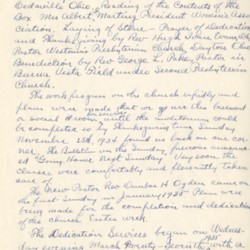 Cedarville Ohio Reading of the Contents of the
Box Mrs Albert Martin President Women's
ciation. Laying of Stone - Prayer of Dedication
and Thanksgiving by Rev Hugh
Pastor Western Presbyterian Church Dayton Ohio
Benediction by Rev George L. Pastor
Buena Vista Field under Second Presbyterian
Church.
The work began on the church rapidly and
plans were made that we use the basement
a social room, until the auditorium could
be completed so by Thanksgiving time Sunday
November 25th 1934 found us back on our own
The Bulletin on the Sunday previous announc-
ed "Going Home Next Sunday" Very soon the
classes were comfortably and pleasantly taken
care of
The New Pastor Rev Ogden came on
the first Sunday in January 1935 Plans were
being made for the completion and dedication
of the Church Entire week
The Dedication Services began on Wednes-
day evening March Twenty-Seventh 1935 with a